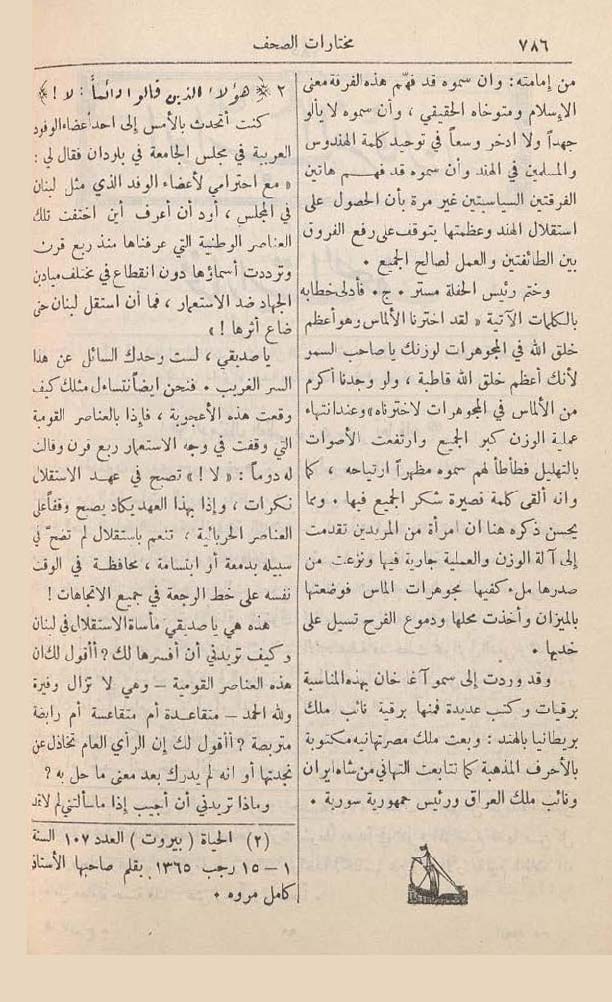 ٧٨٦
مختارات الصحف
من إمامته: وان سموه قد فهّم هذه الفرقة معنى
الإسلام ومتوخاه الحقيقي ، وأن سموه لا يألو
جهداً ولا ادخر وسعاً في توحيد كلمة الهندوس
والمسلمين في الهند وأن سموه قد فهم هاتين
الفرقتين السياسيتين غير مرة بأن الحصول على
استقلال الهند وعظمتها يتوقف على رفع الفروق
بين الطائفتين والعمل لصالح الجميع .
وختم رئيس الحفلة مستر . ج . فأدلى خطابه
بالكلمات الآتية « لقد اخترنا الألماس وهو أعظم
خلق الله في المجوهرات لوزنك يا صاحب السمو
لأنك أعظم خلق الله قاطبة ، ولو وجدنا أكرم
من الألماس في المجوهرات لاخترناه» وعند انتهاء
عملية الوزن كبر الجميع وارتفعت الأصوات
بالتهليل فطأطأ لهم سموه مظهراً ارتياحه ، كما
وانه ألقى كلمة قصيرة شكر الجميع فيها . ومما
يحسن ذكره هنا ان امرأة من المريدين تقدمت
إلى آلة الوزن والعملية جارية فيها ونزعت من
صدرها ملء كفيها مجوهرات الماس فوضعتها
بالميزان وأخذت محلها ودموع الفرح تسيل على
خديها .
وقد وردت إلى سمو آغا خان بهذه المناسبة
برقيات وكتب عديدة فمنها برقية نائب ملك
بريطانيا بالهند : وبعث ملك مصر تهانيه مكتوبة
بالأحرف المذهبة كما تتابعت التهاني من شاه ايران
ونائب ملك العراق ورئيس جمهورية سورية .
٢ ﴿ هؤلاء الذين قالوا دائماً : لا ! ﴾
كنت أتحدث بالأمس إلى احد أعضاء الوفود
العربية في مجلس الجامعة في بلودان فقال لي :
« مع احترامي لأعضاء الوفد الذي مثل لبنان
في المجلس ، أود أن أعرف أين اختفت تلك
العناصر الوطنية التي عرفناها منذ ربع قرن
وترددت أسماؤها دون انقطاع في مختلف ميادين
الجهاد ضد الاستعمار ، فما أن استقل لبنان حتى
ضاع أثرها ! »
يا صديقي ، لست وحدك السائل عن هذا
السر الغريب . فنحن ايضاً نتساءل مثلك كيف
وقعت هذه الأعجوبة ، فإذا بالعناصر القومية
التي وقفت في وجه الاستعمار ربع قرن وقالت
له دوماً : « لا ! » تصبح في عهد الاستقلال
نكرات ، وإذا بهذا العهد يكاد يصبح وقفاً على
العناصر الحربائية ، تنعم باستقلال لم تضحّ في
سبيله بدمعة أو ابتسامة ، محافظة في الوقت
نفسه على خط الرجعة في جميع الاتجاهات !
هذه هي يا صديقي مأساة الاستقلال في لبنان
وكيف تريدني أن أفسرها لك؟ أأقول لك ان
هذه العناصر القومية — وهي لا تزال وفيرة
ولله الحمد — متقاعدة أم متقاعسة أم رابضة
متربصة ؟ أأقول لك إن الرأي العام تخاذل عن
نجدتها أو انه لم يدرك بعد معنى ما حل به ؟
وماذا تريدني أن أجيب إذا ما سألتني لم لا
(٢) الحياة ( بيروت ) العدد ١٠٧ السنة
١ – ١٥ رجب ١٣٦٥ بقلم صاحبها الأستاذ
كامل مروه .